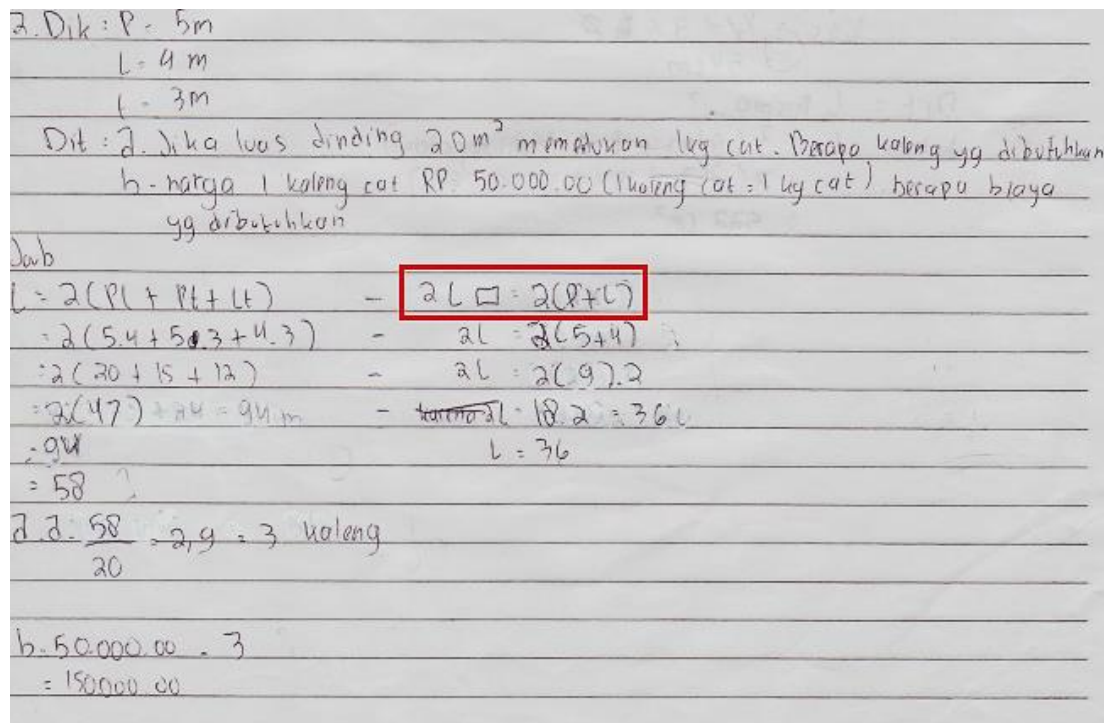 2. Dik : P = 5m
L = 4 m
t = 3m
Dit : a. Jika luas dinding 20m² memerlukan 1kg cat. Berapa kaleng yg dibutuhkan
b. harga 1 kaleng cat RP. 50.000.00 (1 kaleng cat = 1 kg cat) berapa biaya
yg dibutuhkan
Jawb
L = 2(Pl + Pt + Lt) - 2L □ = 2(P+L)
= 2(5.4 + 5.3 + 4.3) - 2L = 2(5+4)
= 2(20 + 15 + 12) - 2L = 2(9).2
= 2(47) + 24 = 94 m - 2L = 18.2 = 36
= 94 L = 36
= 58
2.a. 58/20 = 2,9 = 3 kaleng
b. 50.000.00 . 3
= 150000.00